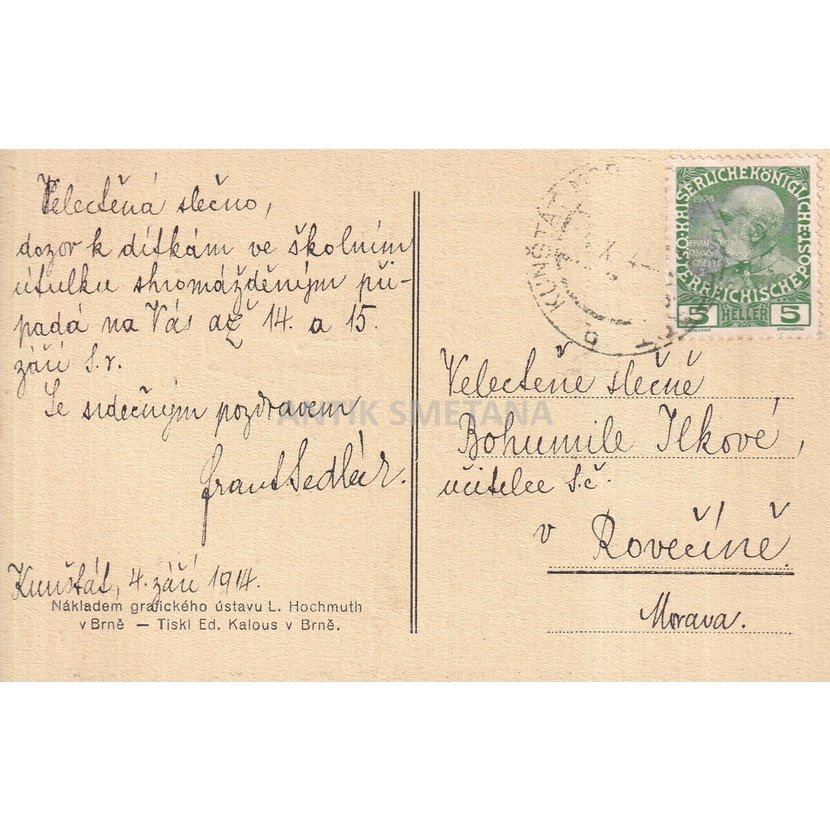 Velectěná slečno,
dozor k dítkám ve školním
útulku shromážděným při-
padá na Vás až 14. a 15.
září t.r.
Se srdečným pozdravem
Frant Sedlák.
Kunštát, 4. září 1914.
Nákladem grafického ústavu L. Hochmuth
v Brně — Tiskl Ed. Kalous v Brně.
KUNŠTÁT
1908
KAISERLICHE KÖNIGLICHE
ÖSTERREICHISCHE POST
5 HELLER 5
Velectěné slečně
Bohumile Ilkové,
učitelce
v Rovečíně
Morava.
ANTIK SMETANA